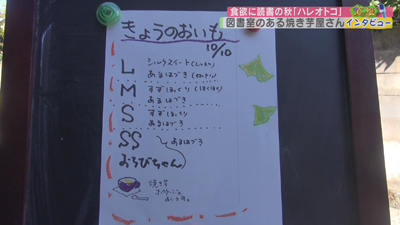 "食欲に読書の秋「ハレオトコ」
図書室のある焼き芋屋さん インタビュー
きょうのおいも
10/10
L シルクスイート(しっとり)
あまはづき
M すずほっくり(ほくほく)
あまはづき
S すずほっくり
あまはづき
SS あまはづき
おちびちゃん
焼き芋
ポタージュ
あります。